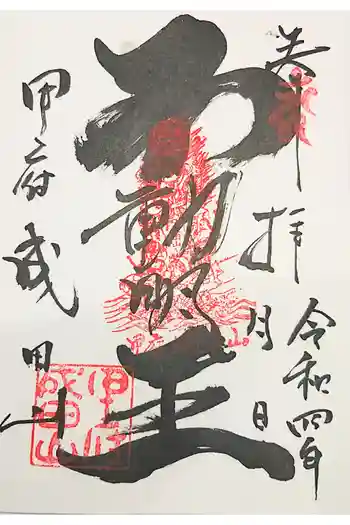 奉拝
令和四年
月 日
不動明王
甲府成田山
甲府
成田山